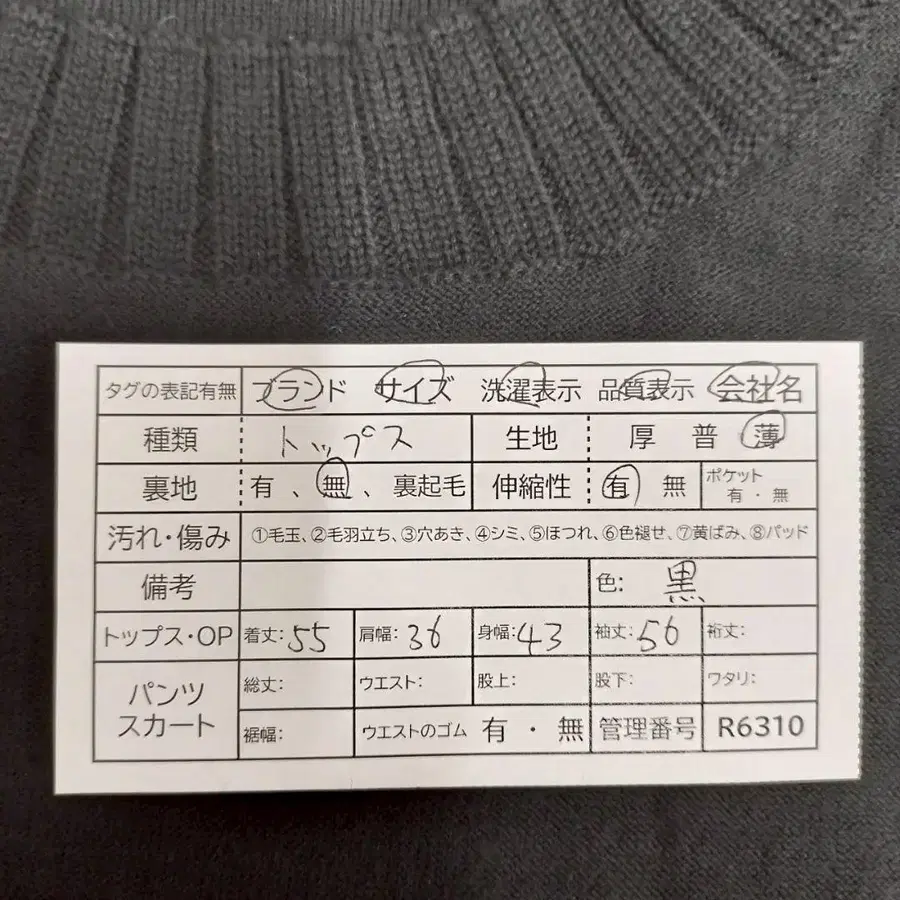 タグの表記有無 ブランド サイズ 洗濯表示 品質表示 会社名
種類 トップス 生地 厚 普 薄
裏地 有 、 無 、 裏起毛 伸縮性 有 無 ポケット 有 ・ 無
汚れ・傷み ①毛玉、②毛羽立ち、③穴あき、④シミ、⑤ほつれ、⑥色褪せ、⑦黄ばみ、⑧パッド
備考 色: 黒
トップス・OP 着丈: 55 肩幅: 36 身幅: 43 袖丈: 56 裄丈:
パンツ スカート 総丈: ウエスト: 股上: 股下: ワタリ:
裾幅: ウエストのゴム 有 ・ 無 管理番号 R6310